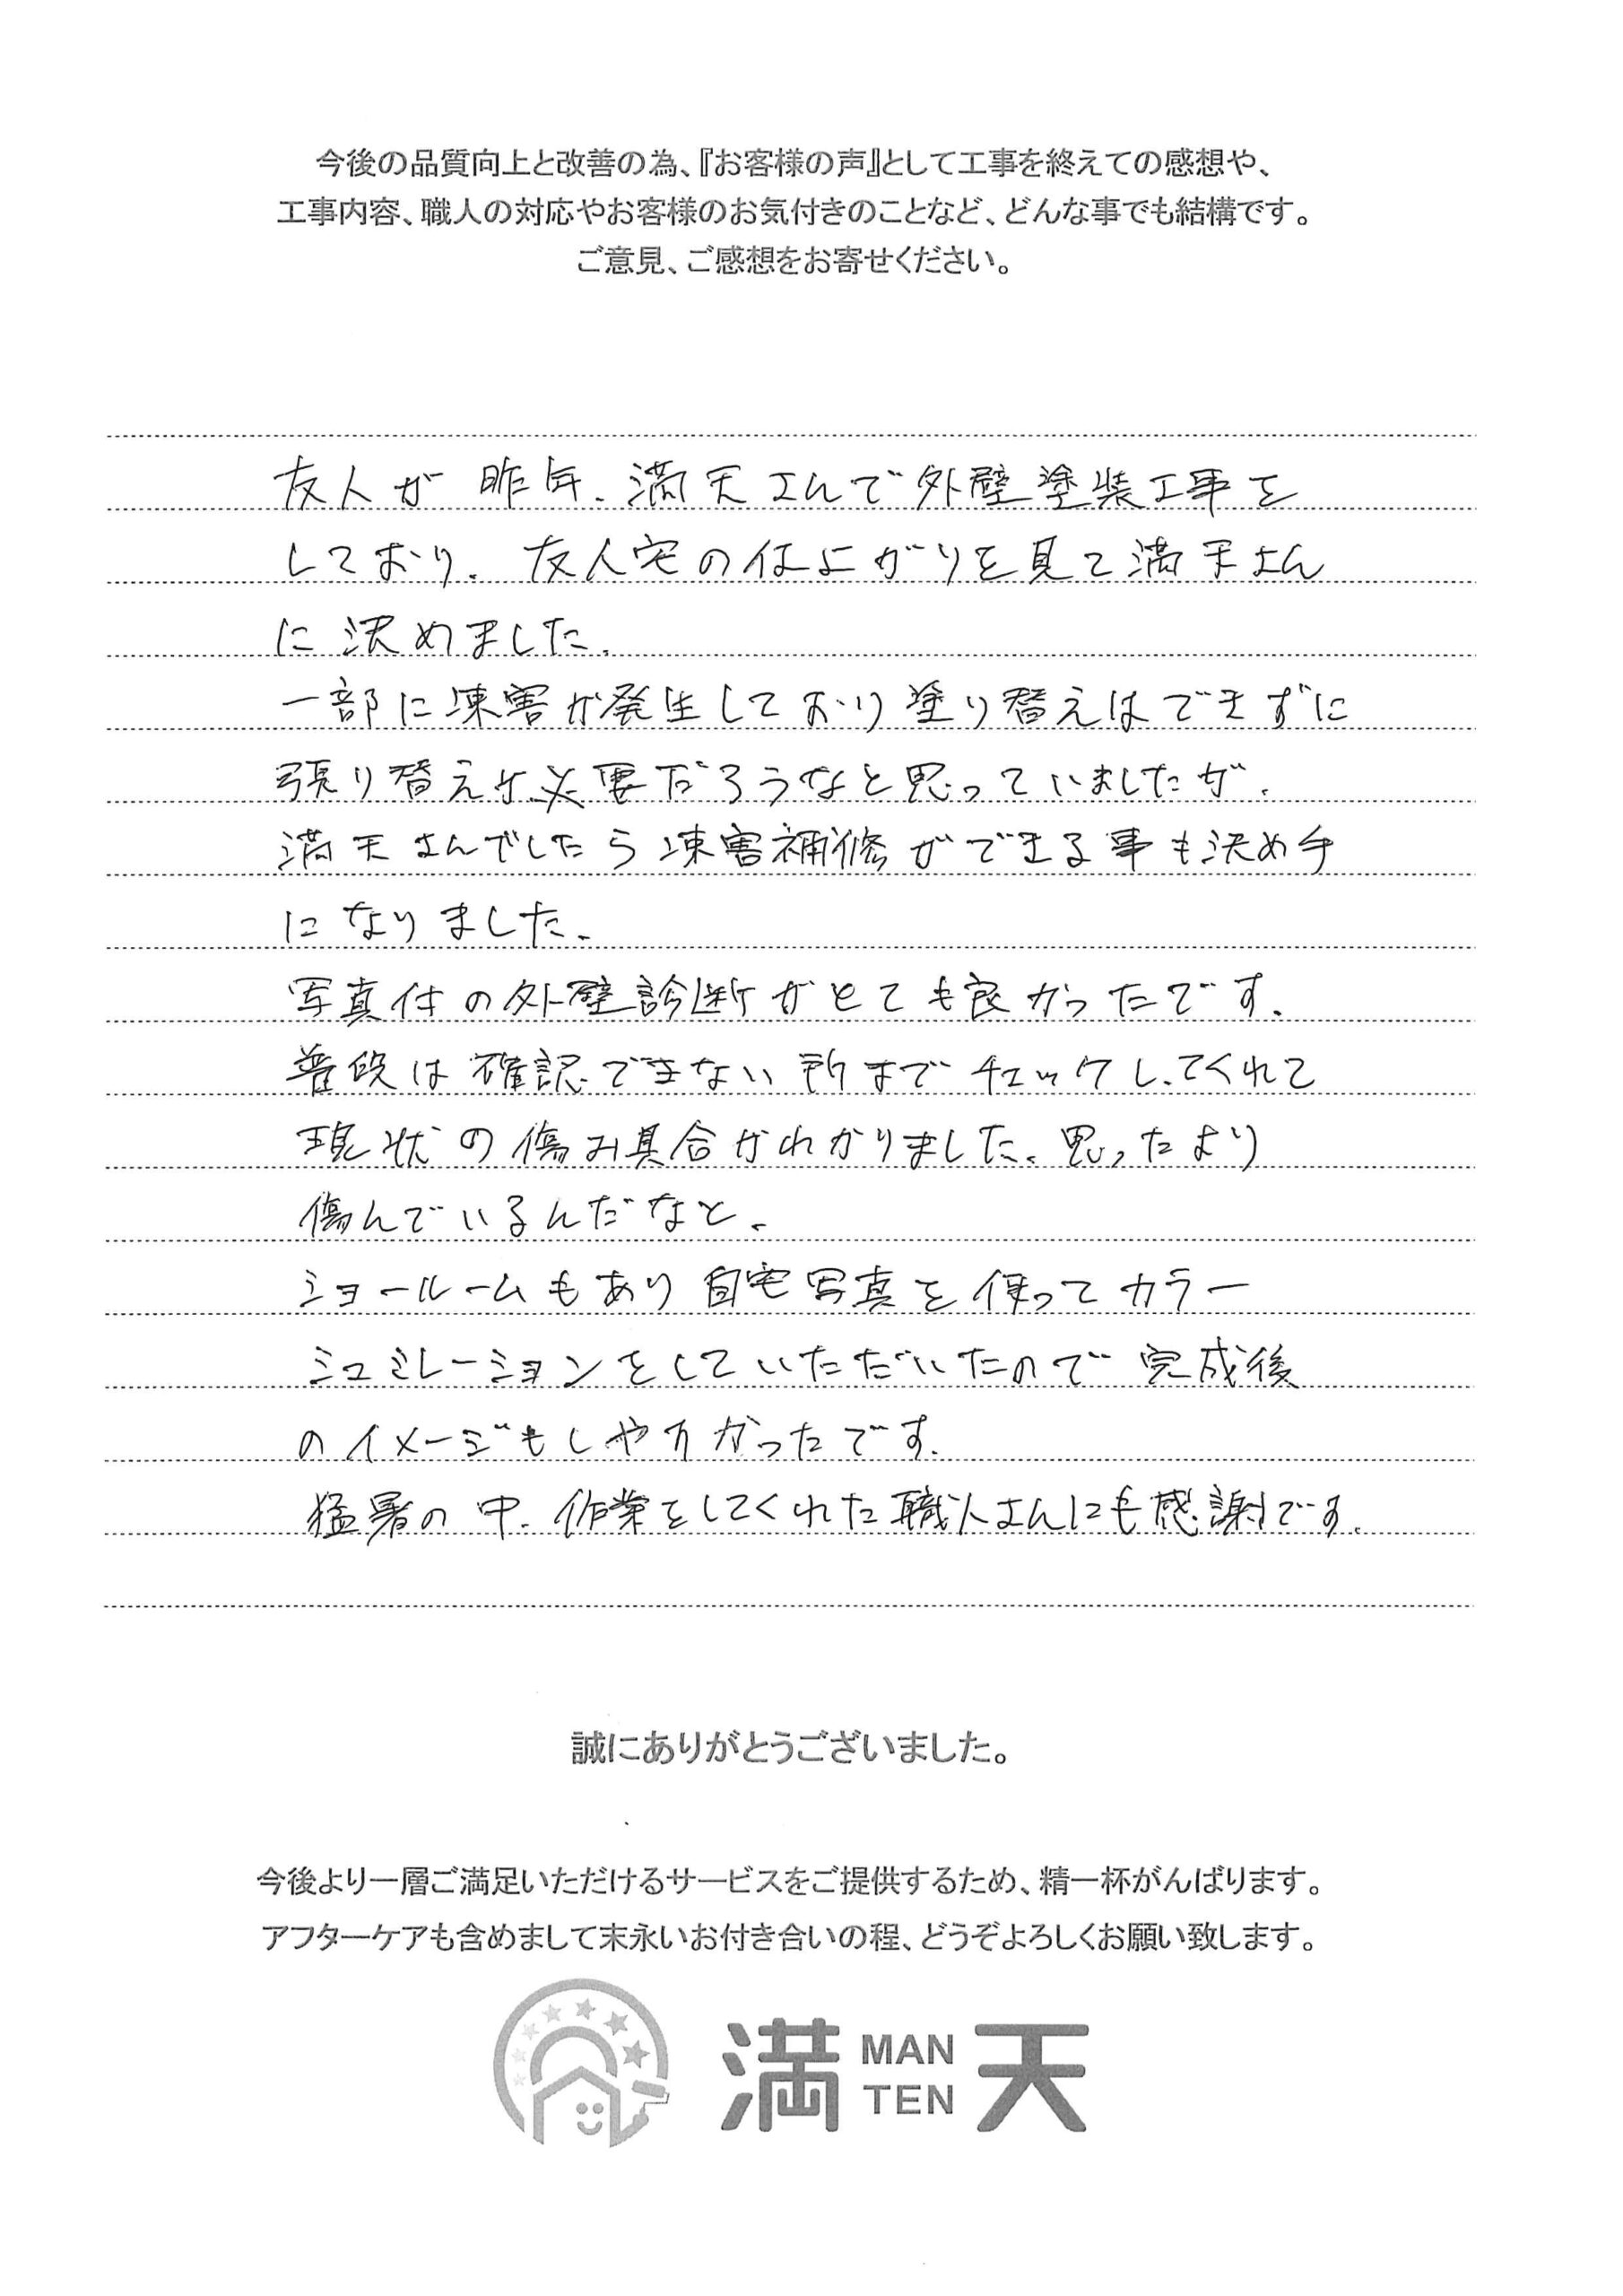 今後の品質向上と改善の為、『お客様の声』として工事を終えての感想や、
工事内容、職人の対応やお客様のお気付きのことなど、どんな事でも結構です。
ご意見、ご感想をお寄せください。
友人が昨年、満天さんで外壁塗装工事を
しており、友人宅の仕上がりを見て満天さん
に決めました。
一部に凍害が発生しており塗り替えはできずに
張り替えが必要だろうなと思っていましたが、
満天さんでしたら凍害補修ができる事も決め手
になりました。
写真付の外壁診断がとても良かったです。
普段は確認できない所までチェックしてくれて
現状の傷み具合がわかりました。思ったより
傷んでいるんだなと。
ショールームもあり自宅写真を使ってカラー
シュミレーションをしていただいたので完成後
のイメージもしやすかったです。
猛暑の中、作業をしてくれた職人さんにも感謝です。
誠にありがとうございました。
今後より一層ご満足いただけるサービスをご提供するため、精一杯がんばります。
アフターケアも含めまして末永いお付き合いの程、どうぞよろしくお願い致します。
満 MAN TEN 天